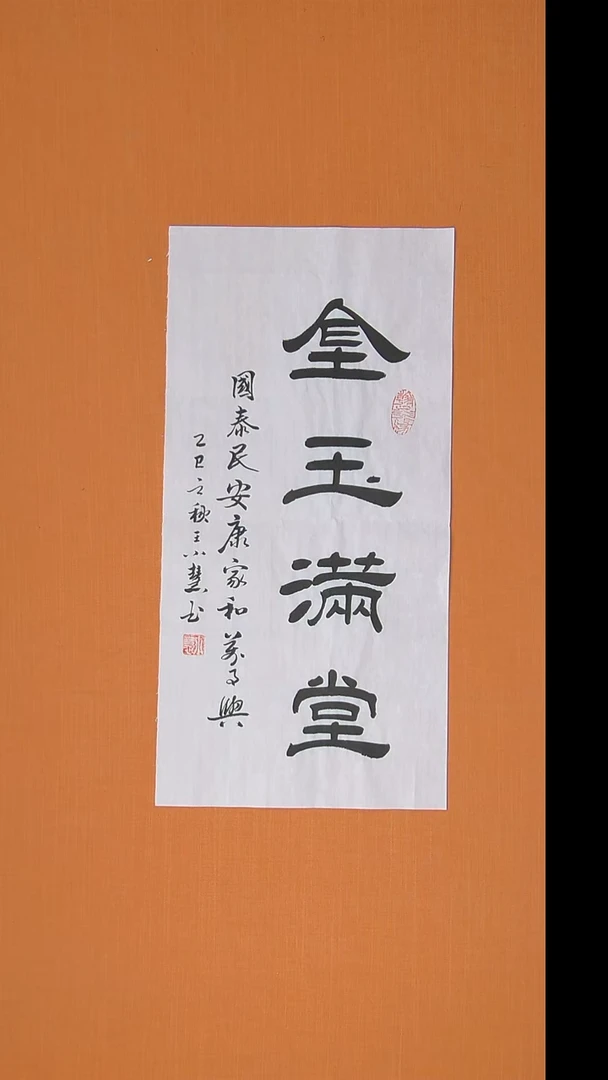 金玉滿堂
國泰民安康家和萬事興
乙巳立秋王小慧书